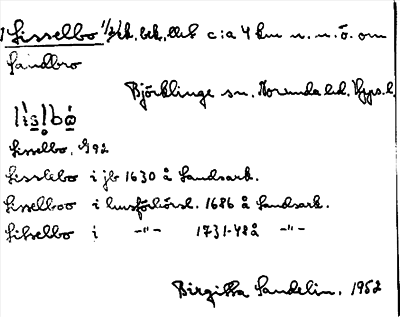 Lisselbo 1/2 sk. bek. c:a 4 km n. n. ö. om
Sandbro
Björklinge sn. Norunda hd. Upps. l.
Lisselbo, G 92
Lisslebo i jb 1630 å Landsark.
Lisselboo i husförhörsl. 1686 å Landsark.
Litselbo i -"- 1731-48 å -"-
Birgitta Sandelin, 1952